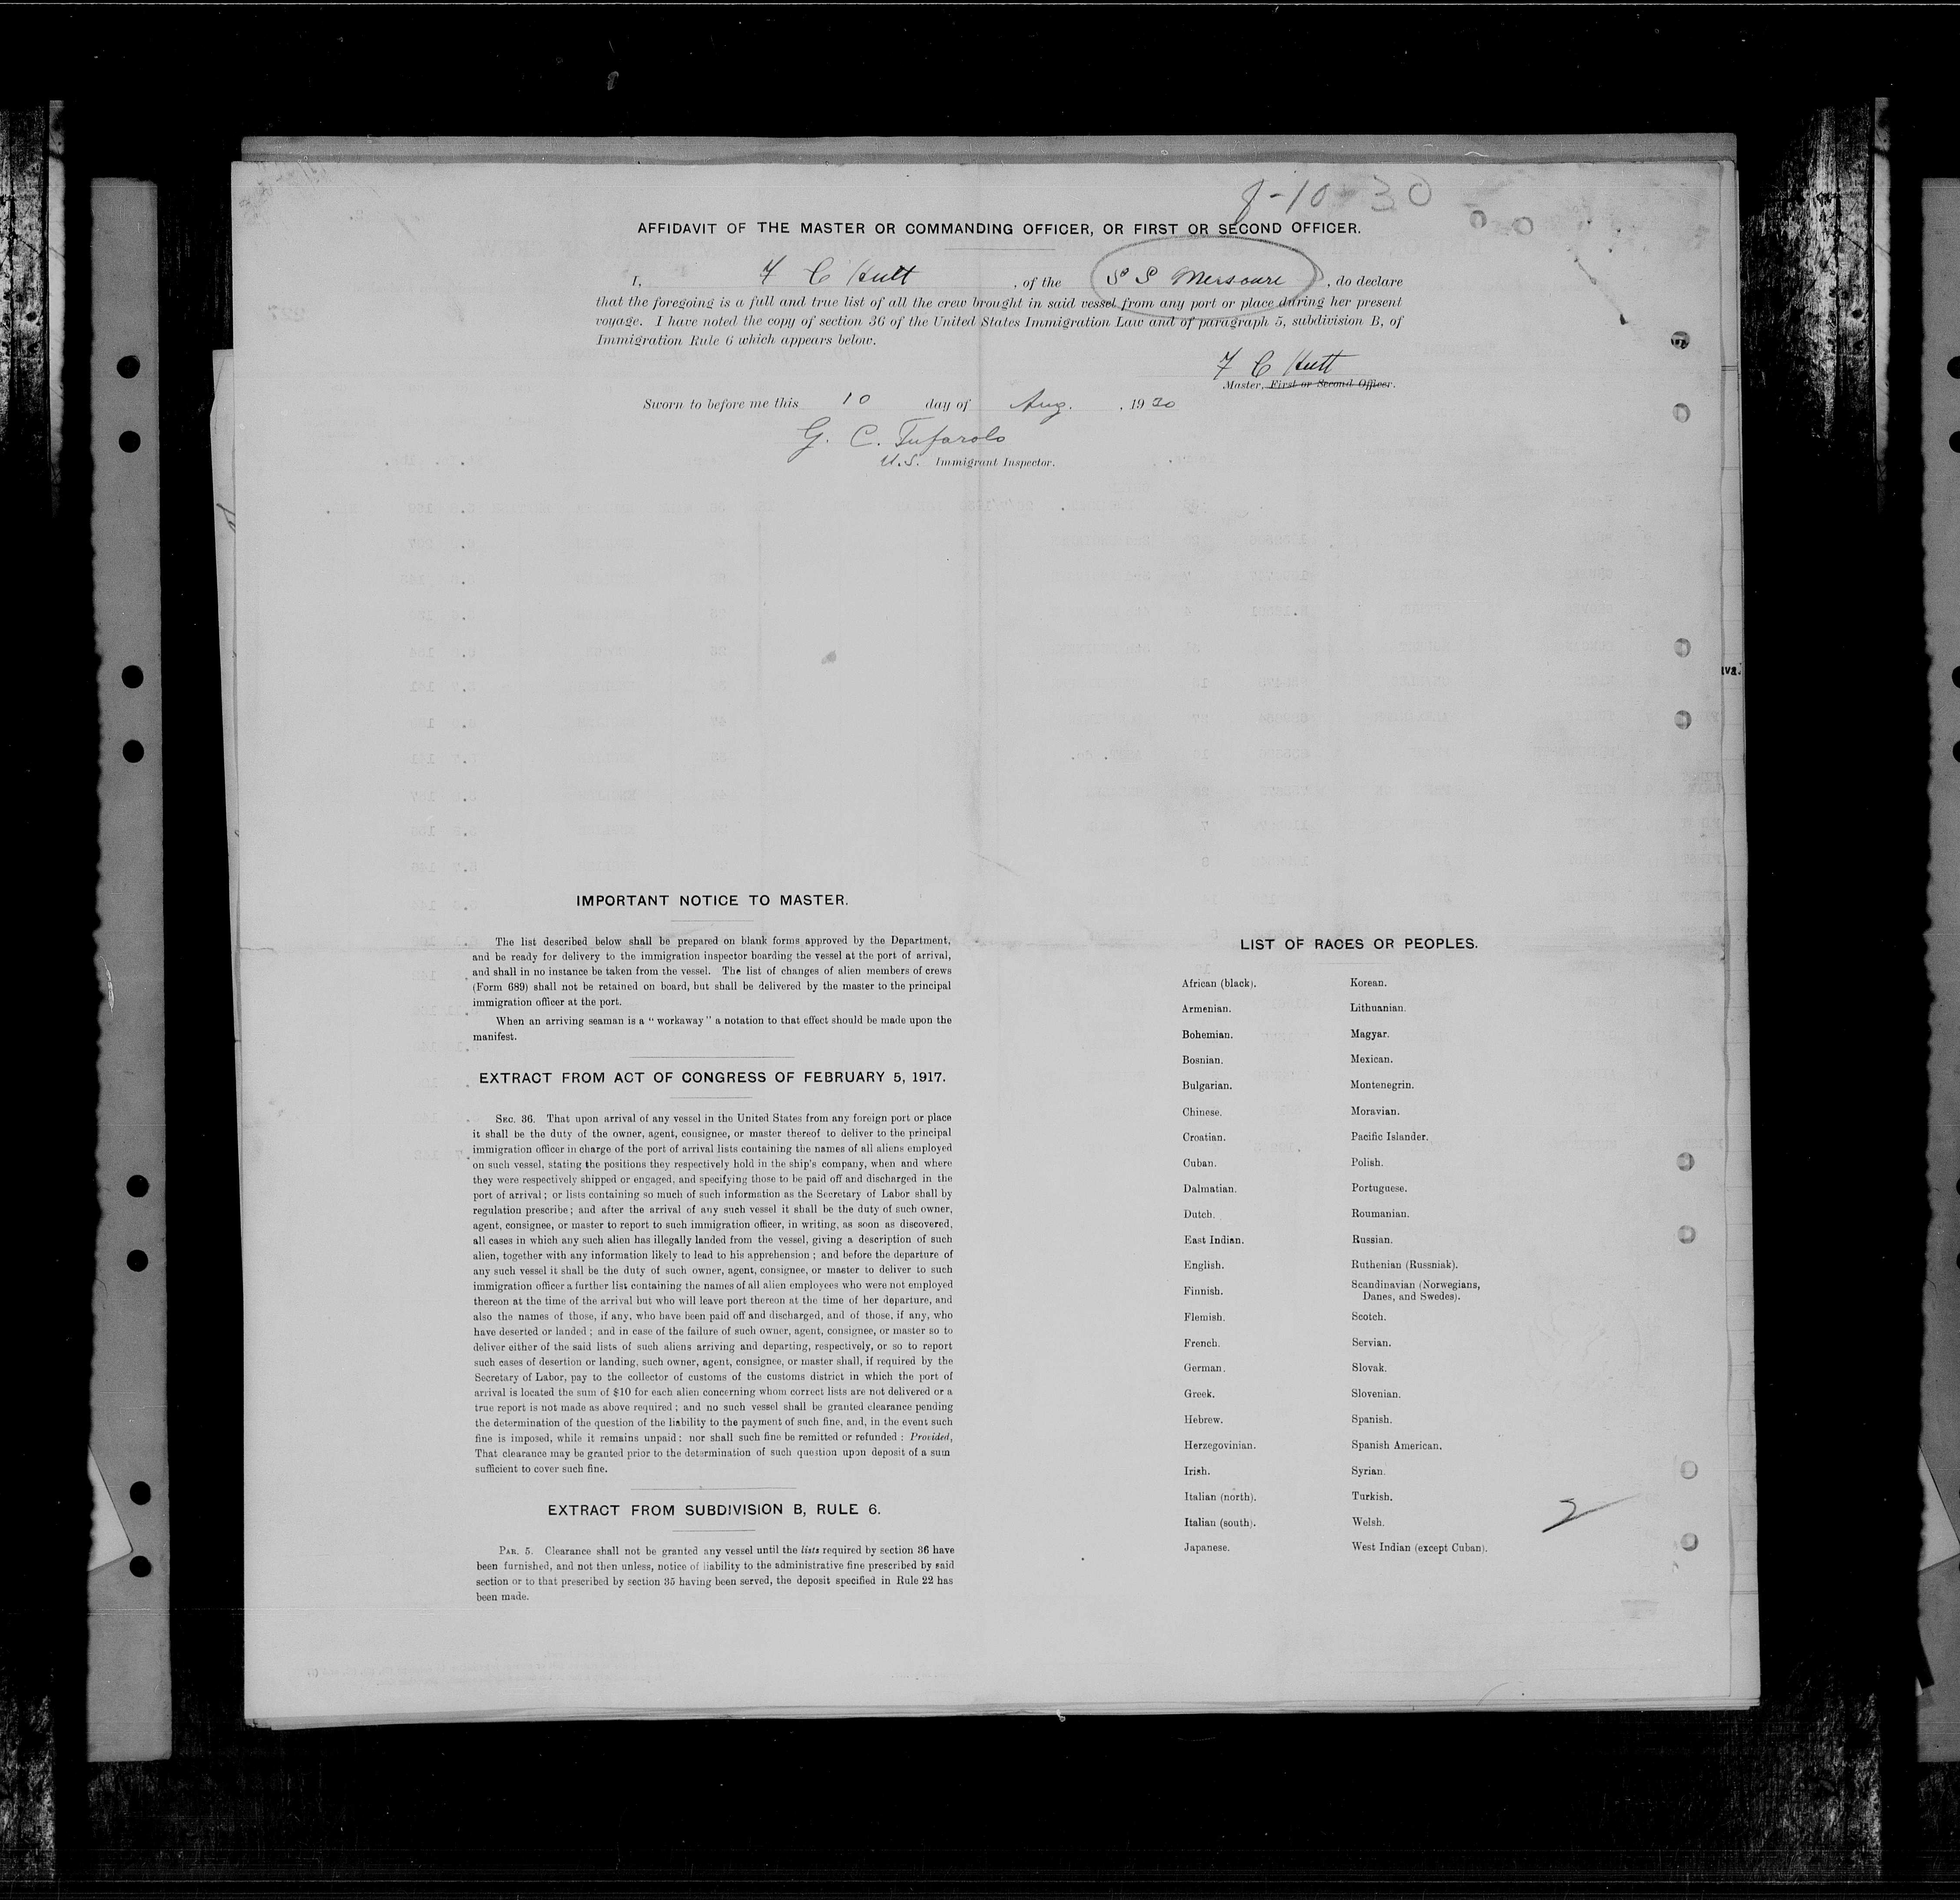 8-10-30
AFFIDAVIT OF THE MASTER OR COMMANDING OFFICER, OR FIRST OR SECOND OFFICER.
I, F C Hutt, of the S S Missouri, do declare
that the foregoing is a full and true list of all the crew brought in said vessel from any port or place during her present
voyage. I have noted the copy of section 36 of the United States Immigration Law and of paragraph 5, subdivision B, of
Immigration Rule 6 which appears below.
F C Hutt
Master, First or Second Officer.
Sworn to before me this 10 day of Aug., 1930
G. C. Tufarolo
U.S. Immigrant Inspector.
IMPORTANT NOTICE TO MASTER.
The list described below shall be prepared on blank forms approved by the Department,
and be ready for delivery to the immigration inspector boarding the vessel at the port of arrival,
and shall in no instance be taken from the vessel. The list of changes of alien members of crews
(Form 689) shall not be retained on board, but shall be delivered by the master to the principal
immigration officer at the port.
When an arriving seaman is a "workaway" a notation to that effect should be made upon the
manifest.
EXTRACT FROM ACT OF CONGRESS OF FEBRUARY 5, 1917.
SEC. 36. That upon arrival of any vessel in the United States from any foreign port or place
it shall be the duty of the owner, agent, consignee, or master thereof to deliver to the principal
immigration officer in charge of the port of arrival lists containing the names of all aliens employed
on such vessel, stating the positions they respectively hold in the ship's company, when and where
they were respectively shipped or engaged, and specifying those to be paid off and discharged in the
port of arrival; or lists containing so much of such information as the Secretary of Labor shall by
regulation prescribe; and after the arrival of any such vessel it shall be the duty of such owner,
agent, consignee, or master to report to such immigration officer, in writing, as soon as discovered,
all cases in which any such alien has illegally landed from the vessel, giving a description of such
alien, together with any information likely to lead to his apprehension; and before the departure of
any such vessel it shall be the duty of such owner, agent, consignee, or master to deliver to such
immigration officer a further list containing the names of all alien employees who were not employed
thereon at the time of the arrival but who will leave port thereon at the time of her departure, and
also the names of those, if any, who have been paid off and discharged, and of those, if any, who
have deserted or landed; and in case of the failure of such owner, agent, consignee, or master so to
deliver either of the said lists of such aliens arriving and departing, respectively, or so to report
such cases of desertion or landing, such owner, agent, consignee, or master shall, if required by the
Secretary of Labor, pay to the collector of customs of the customs district in which the port of
arrival is located the sum of $10 for each alien concerning whom correct lists are not delivered or a
true report is not made as above required; and no such vessel shall be granted clearance pending
the determination of the question of the liability to the payment of such fine, and, in the event such
fine is imposed, while it remains unpaid; nor shall such fine be remitted or refunded: Provided,
That clearance may be granted prior to the determination of such question upon deposit of a sum
sufficient to cover such fine.
EXTRACT FROM SUBDIVISION B, RULE 6.
PAR. 5. Clearance shall not be granted any vessel until the lists required by section 36 have
been furnished, and not then unless, notice of liability to the administrative fine prescribed by said
section or to that prescribed by section 35 having been served, the deposit specified in Rule 22 has
been made.
LIST OF RACES OR PEOPLES.
African (black). Korean.
Armenian. Lithuanian.
Bohemian. Magyar.
Bosnian. Mexican.
Bulgarian. Montenegrin.
Chinese. Moravian.
Croatian. Pacific Islander.
Cuban. Polish.
Dalmatian. Portuguese.
Dutch. Roumanian.
East Indian. Russian.
English. Ruthenian (Russniak).
Finnish. Scandinavian (Norwegians,
Danes, and Swedes).
Flemish. Scotch.
French. Servian.
German. Slovak.
Greek. Slovenian.
Hebrew. Spanish.
Herzegovinian. Spanish American.
Irish. Syrian.
Italian (north). Turkish.
Italian (south). Welsh.
Japanese. West Indian (except Cuban).
2